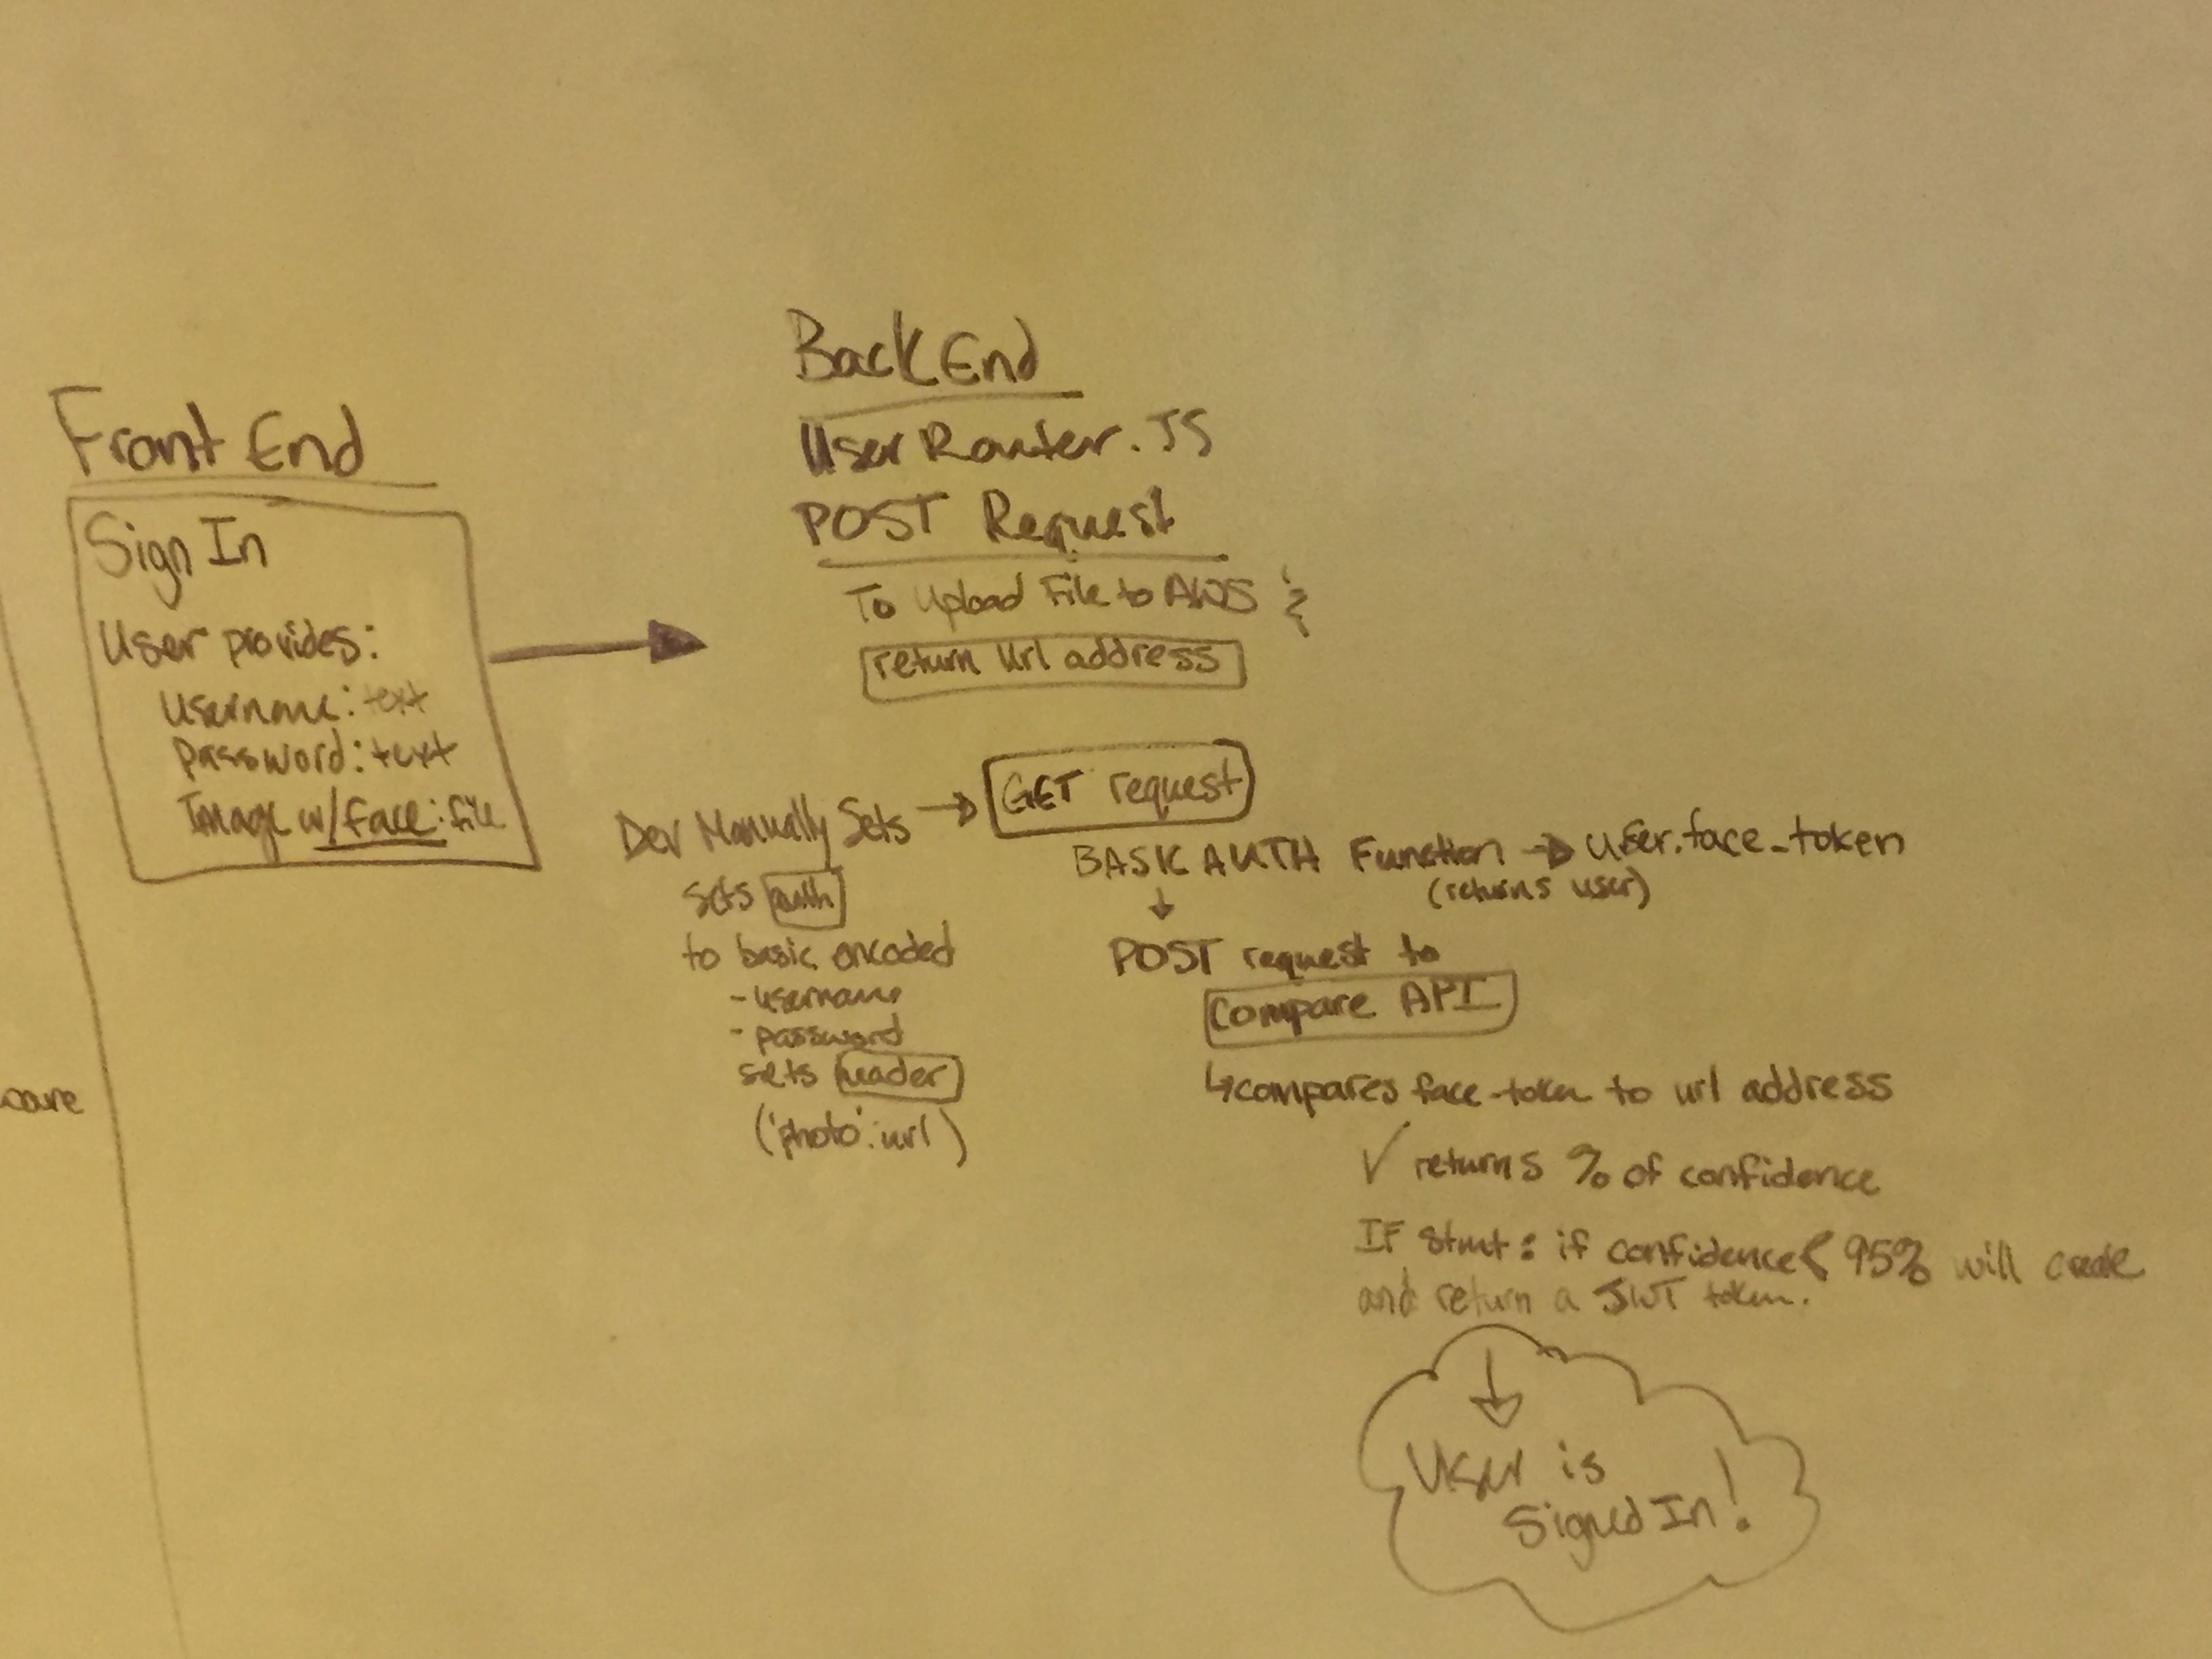 Front End
Sign In
User provides:
Username: text
Password: text
Image w/face: file
Back End
User Router.JS
POST Request
To Upload File to AWS &
return url address
Dev Manually Sets → GET request
sets auth
to basic encoded
- username
- password
sets header
('photo': url)
BASIC AUTH Function → user.face_token
(returns user)
↓
POST request to
Compare API
↳ compares face-token to url address
✓ returns % of confidence
IF stmt: if confidence < 95% will create
and return a JWT token.
↓
User is
Signed In!